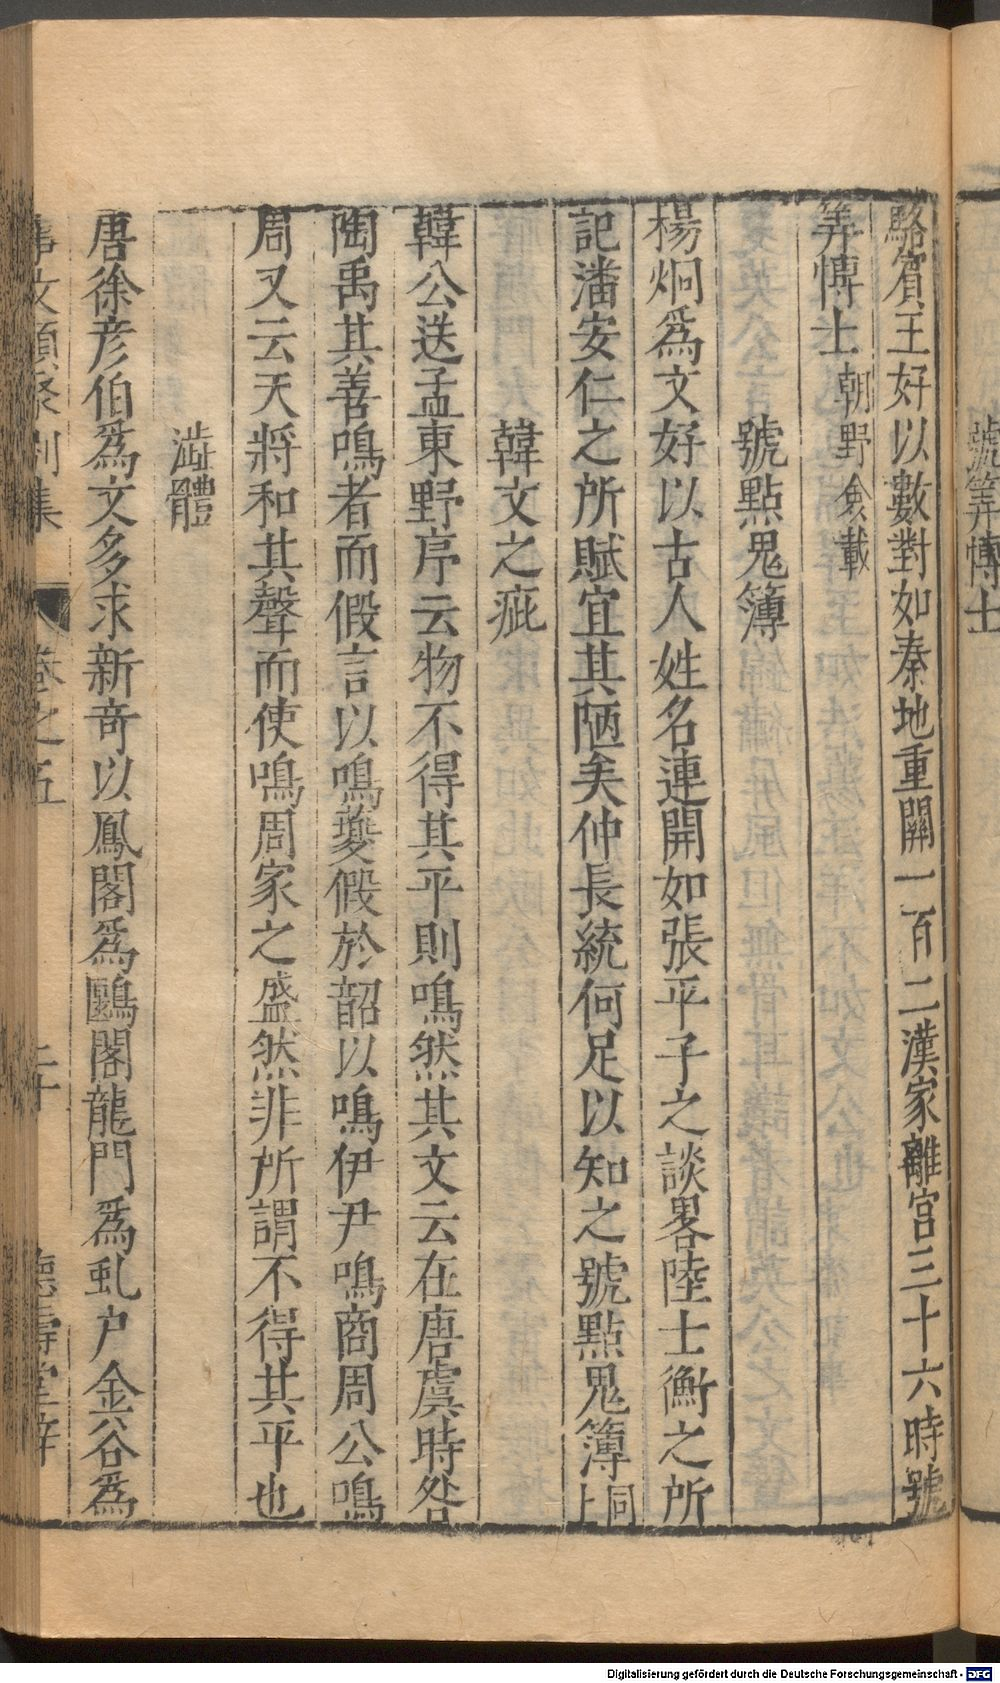 號筭博士
駱賓王好以數對如秦地重關一百二漢家離宮三十六時號
筭博士朝野僉載
號點鬼簿
楊炯爲文好以古人姓名連開如張平子之談畧陸士衡之所
記潘安仁之所賦宜其陋矣仲長統何足以知之號點鬼簿同上
韓文之疵
韓公送孟東野序云物不得其平則鳴然其文云在唐虞時咎
陶禹其善鳴者而假言以鳴夔假於韶以鳴伊尹鳴商周公鳴
周又云天將和其聲而使鳴周家之盛然非所謂不得其平也
澁體
唐徐彦伯爲文多求新奇以鳳閣爲鷗閣龍門爲虬户金谷爲
事文類聚別集 卷之五 二十 德壽堂梓
Digitalisierung gefördert durch die Deutsche Forschungsgemeinschaft - DFG